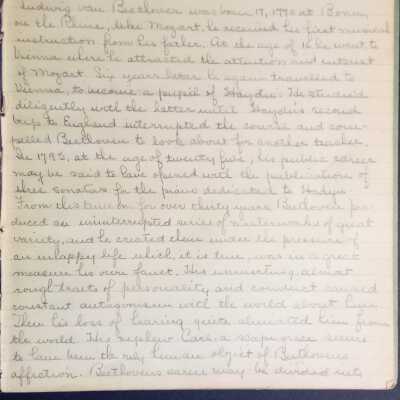 Ludwig van Beethoven was born 17, 1770 at Bonn,
on the Rhine, like Mozart, he received his first musical
instruction from his father. At the age of 16 he went to
Vienna where he attracted the attention and interest
of Mozart. Six years later he again travelled to
Vienna, to become a pupil of Haydn. He studied
diligently with the latter until Haydn's second
trip to England interrupted the course and com-
pelled Beethoven to look about for another teacher.
In 1795, at the age of twenty five, his public career
may be said to have opened with the publications of
three sonatas for the piano dedicated to Haydn.
From this time on for over thirty years Beethoven pro-
duced an uninterrupted series of masterworks of great
variety, and he created them under the pressure of
an unhappy life which, it is true, was in a great
measure his own fault. His unremitting, almost
rough traits of personality and conduct caused
constant antagonism with the world about him.
Then his loss of hearing quite alienated him from
the world. His nephew Carl, a scapegrace seems
to have been the only human object of Beethovens
affection. Beethovens career may be divided into